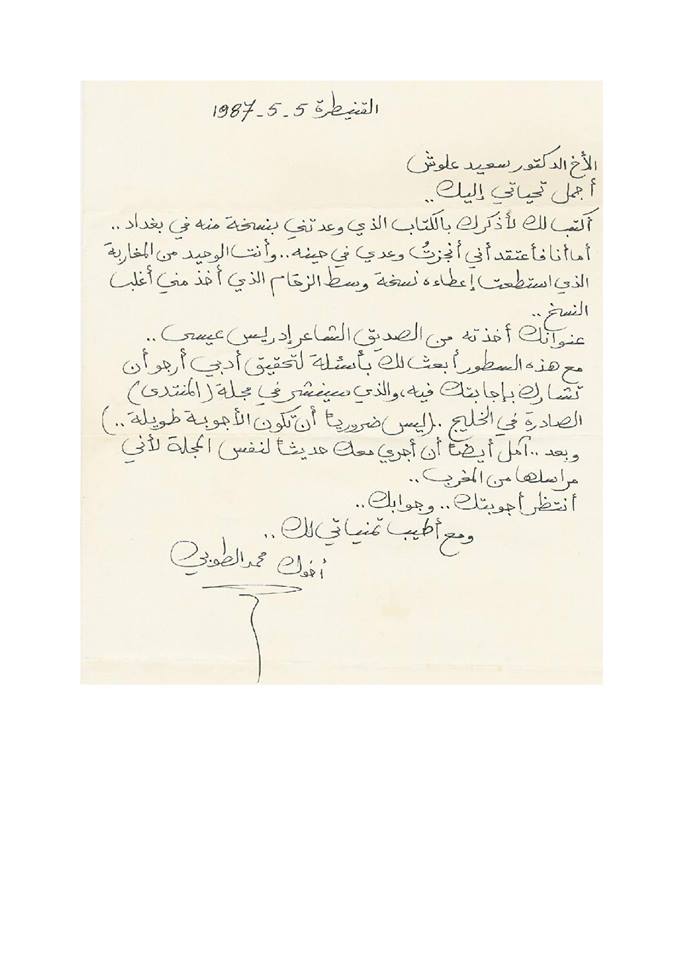 القنيطرة 5-5-1987
الأخ الدكتور سعيد علوش
أجمل تحياتي إليك..
أكتب لك لأذكرك بالكتاب الذي وعدتني بنسخة منه في بغداد..
أما أنا فأعتقد أني أنجزتُ وعدي في حينه.. وأنت الوحيد من المغاربة
الذي استطعت إعطاءه نسخة وسط الزحام الذي أخذ مني أغلب
النسخ..
عنوانك أخذته من الصديق الشاعر إدريس عيسى..
مع هذه السطور أبعث لك بأسئلة لتحقيق أدبي أرجو أن
تشارك بإجابتك فيه، والذي سينشر في مجلة (المنتدى)
الصادرة في الخليج.. (ليس ضرورياً أن تكون الأجوبة طويلة..)
وبعد.. آمل أيضاً أن أجري معك حديثاً لنفس المجلة لأني
مراسلها من المغرب..
أنتظر أجوبتك.. وجوابك..
ومع أطيب تمنياتي لك..
أخوك محمد الطوبي